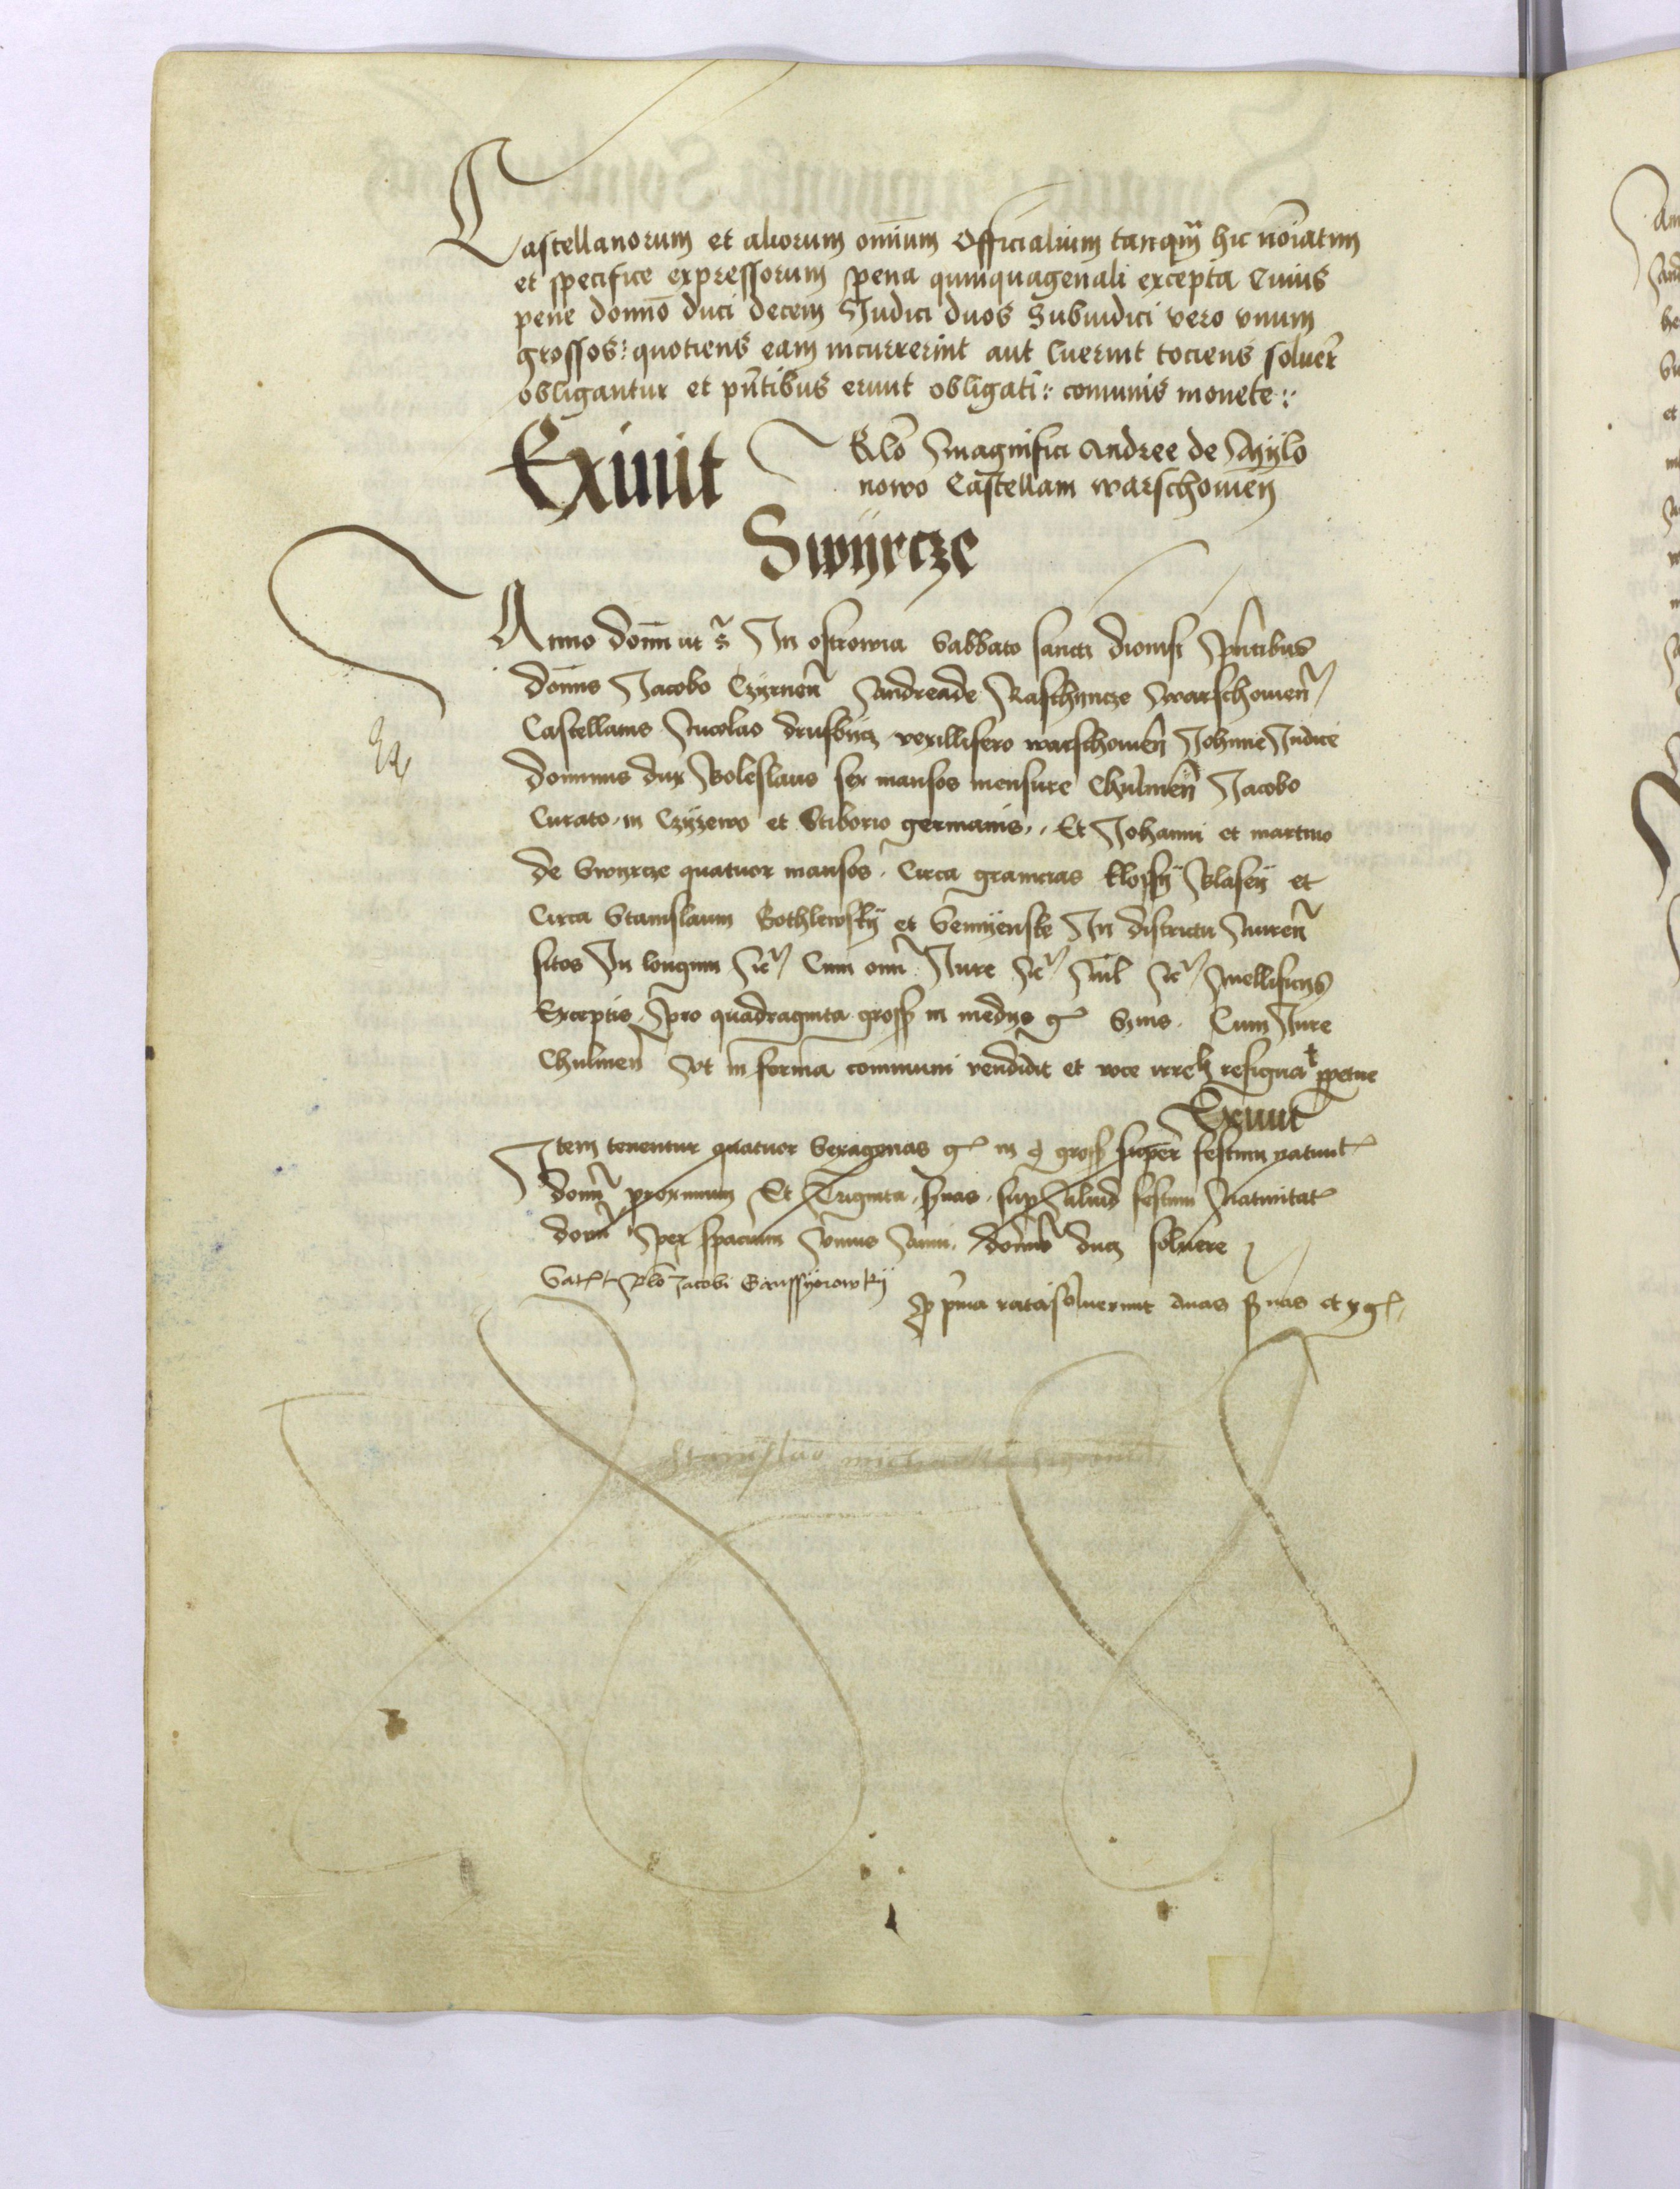 Castellanorum et aliorum omīum Officialium tanqm̄ hic nōiatim
et specifice expressorum pena quinquagenali excepta Cuius
pene domno duci decem Judici duos Subiudici vero vnum
grossos: quotiens eam incurrerint aut luerint tociens soluer̄
obligantur et pn̄tibus erunt obligati: comunis monete:
Exiuit
Rlō magnifici Andree de
nowo Castellani warschouien̄
Swyrcze
Anno domī ut s̄ In ostrowia Sabbato sancti dionisi pn̄tibus
dom̄s Jacobo Czyrnen̄ Andrea de Raschyncze warschouien̄
Castellanis Nicolao drusbycz vexillifero warschouien̄ Johnne Judice
dominus dux Boleslaus sex mansos mensure Chulmen̄ Jacobo
Curato in Czyzewo et Stiborio germanis, Et Johanni et martino
de Swyrcze quatuor mansos Circa granicias klossy Blasey et
Circa Stanislaum Gothlewsky et Sennyenske In districtu Nuren̄
sitos In longum Cum om̄i Jure mellificys
Exceptis pro quadraginta gross in medys g Cum Jure
Chulmen̄ vt in forma communi vendidit et resignat ppetue
Exiuit
Item tenentur quatuor Sexagenas g in gross super festum natiuit
dom̄ proximum Et Triginta sup aliud festum Natiuitat
dom̄ per spacium vnius Anni dom̄o duci soluere
Rlō Jacobi
p pma rata soluerunt duas et g
Stanislao michaele